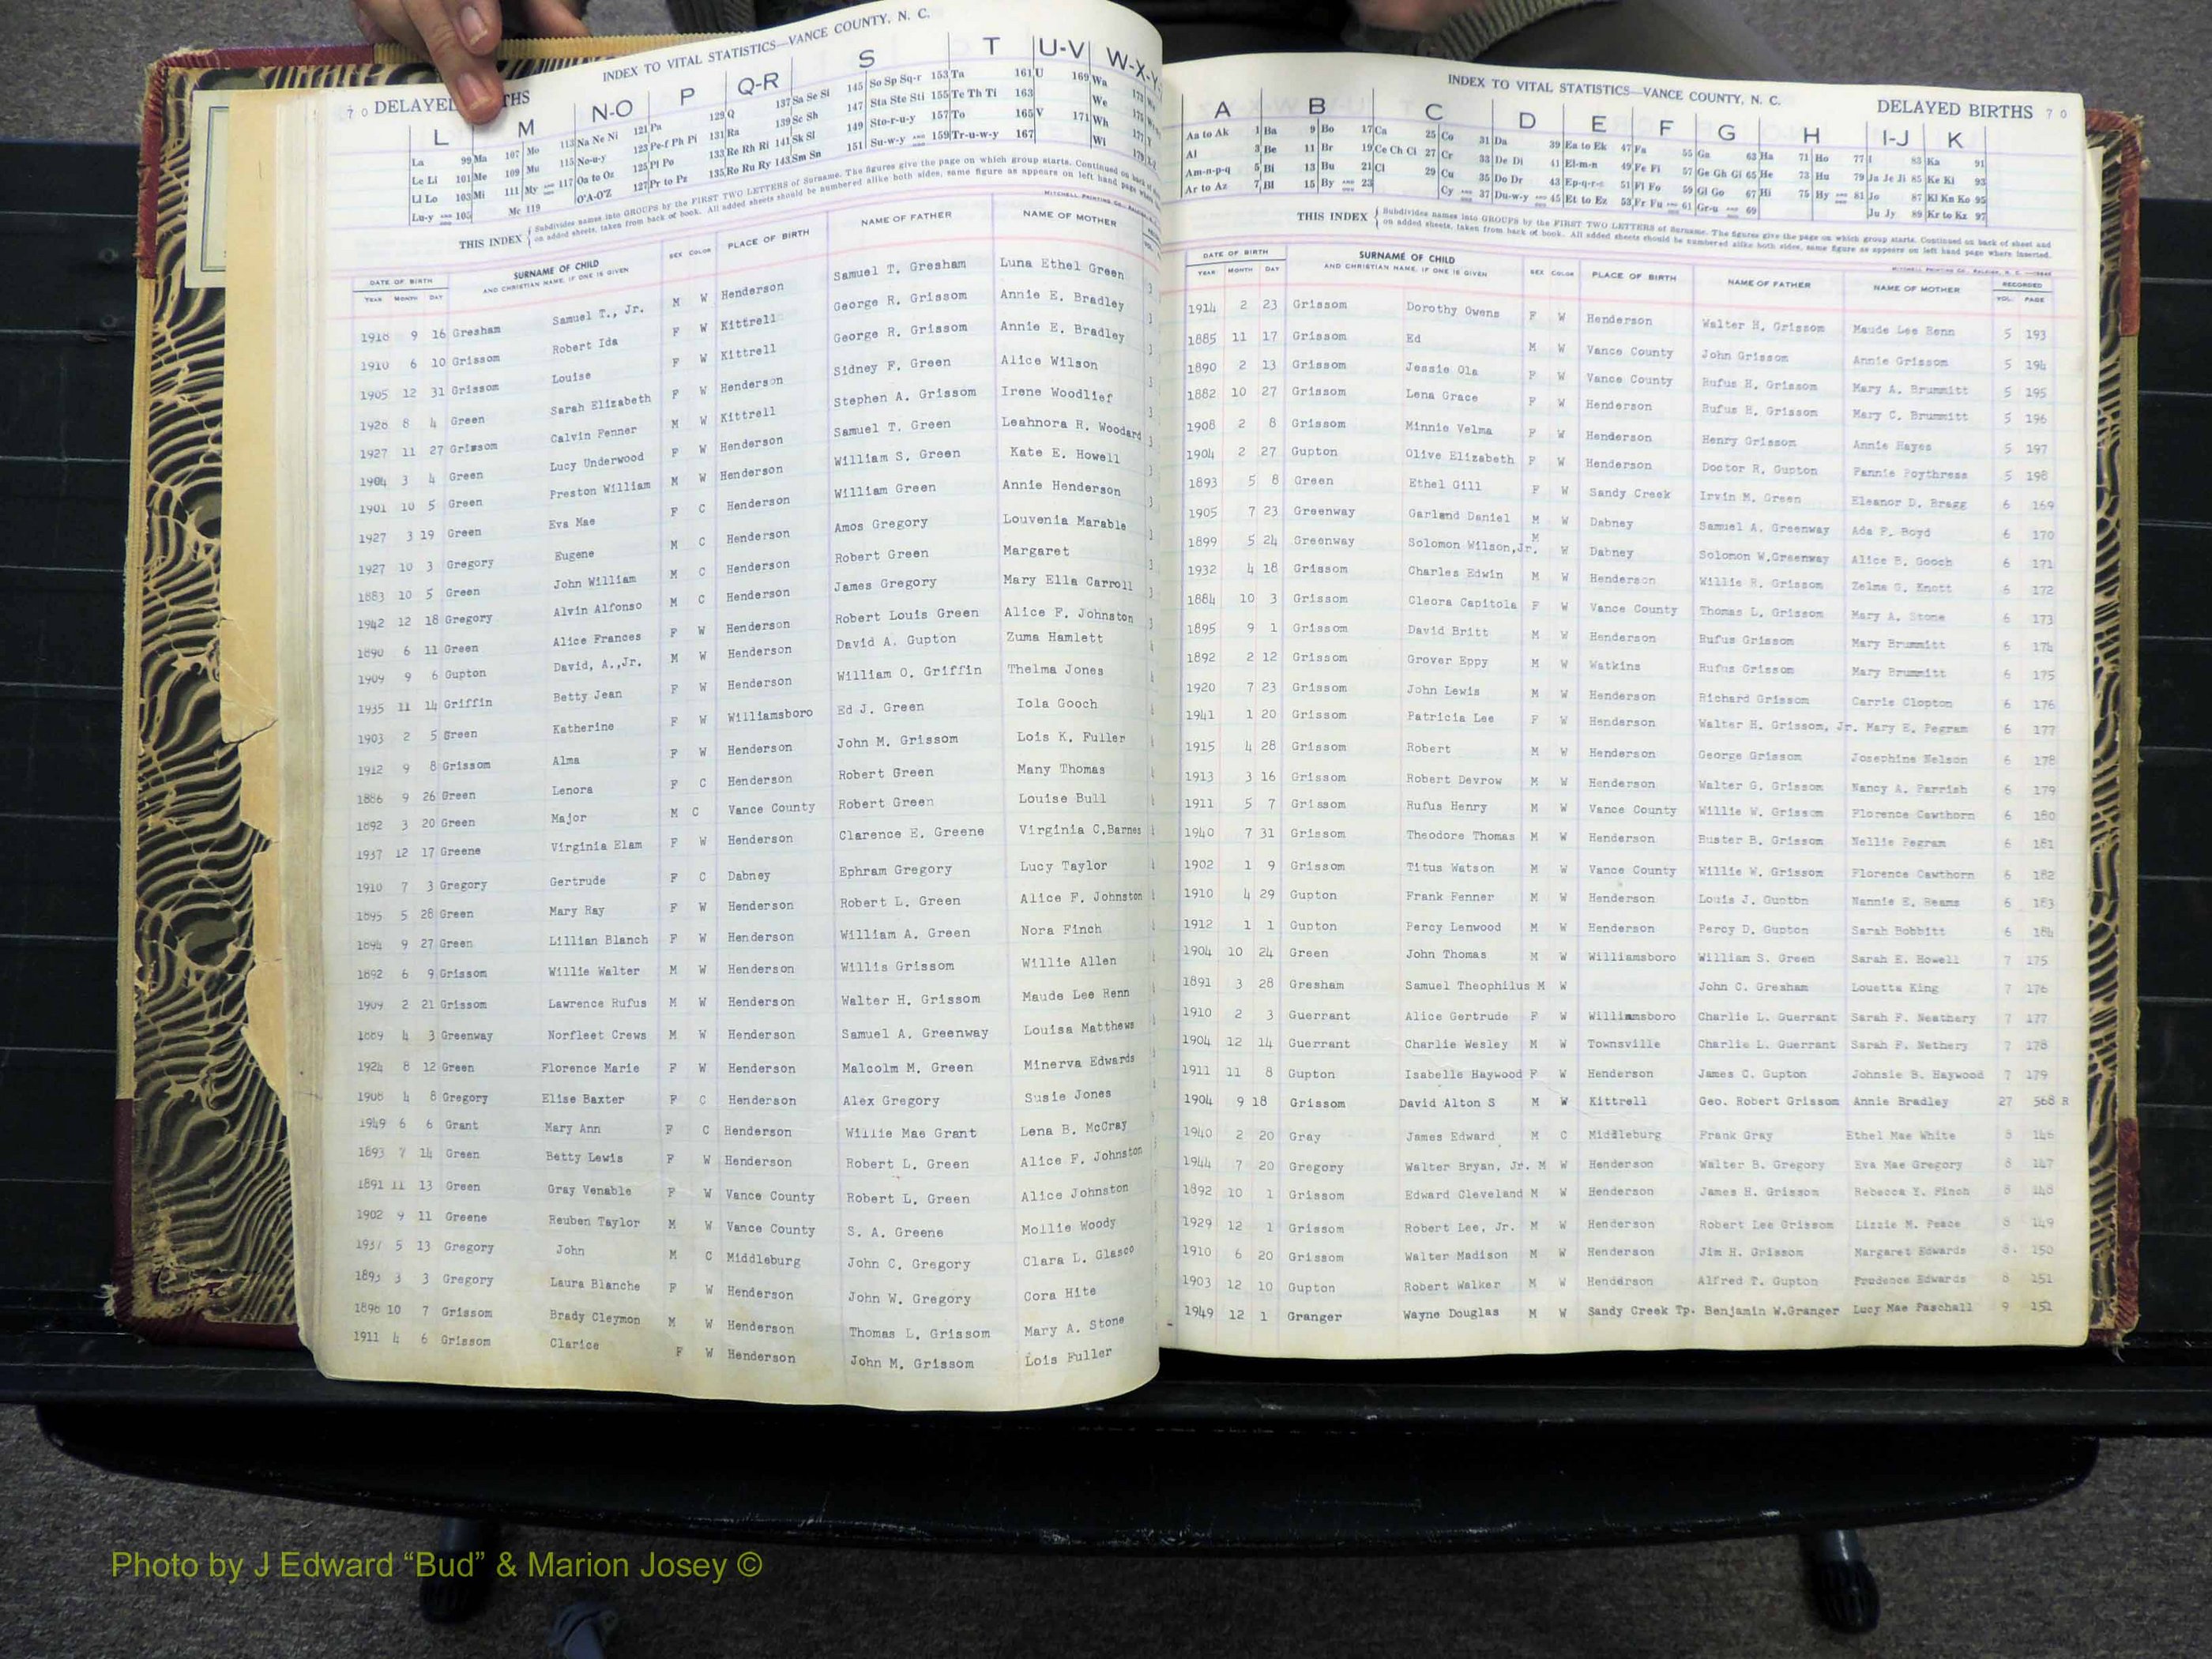 INDEX TO VITAL STATISTICS—VANCE COUNTY, N. C.
7 0 DELAYED THS
L M N-O P Q-R S T U-V W-X-Y
La 99 Ma 107 Mo 113 Na Ne Ni 121 Pa 129 Q 137 Sa Se Si 145 So Sp Sq-r 153 Ta 161 U 169 Wa
Le Li 101 Me 109 Mu 115 No-u-y 123 Pe-f Ph Pi 131 Ra 139 Sc Sh 147 Sta Ste Sti 155 Te Th Ti 163 We
Ll Lo 103 Mi 111 My AND END 117 Oa to Oz 125 Pl Po 133 Re Rh Ri 141 Sk Sl 149 Sto-r-u-y 157 To 165 V 171 Wh
Lu-y AND END 105 Mc 119 O'A-O'Z 127 Pr to Pz 135 Ro Ru Ry 143 Sm Sn 151 Su-w-y AND END 159 Tr-u-w-y 167 Wi
THIS INDEX { Subdivides names into GROUPS by the FIRST TWO LETTERS of Surname. The figures give the page on which group starts. Continued on back of
on added sheets, taken from back of book. All added sheets should be numbered alike both sides, same figure as appears on left hand page where
DATE OF BIRTH SURNAME OF CHILD SEX COLOR PLACE OF BIRTH NAME OF FATHER NAME OF MOTHER
YEAR MONTH DAY AND CHRISTIAN NAME, IF ONE IS GIVEN
1918 9 16 Gresham Samuel T., Jr. M W Henderson Samuel T. Gresham Luna Ethel Green
1910 6 10 Grissom Robert Ida F W Kittrell George R. Grissom Annie E. Bradley
1905 12 31 Grissom Louise F W Kittrell George R. Grissom Annie E. Bradley
1926 8 4 Green Sarah Elizabeth F W Henderson Sidney F. Green Alice Wilson
1927 11 27 Grissom Calvin Fenner M W Kittrell Stephen A. Grissom Irene Woodlief
1904 3 4 Green Lucy Underwood F W Henderson Samuel T. Green Leahnora R. Woodard
1901 10 5 Green Preston William M W Henderson William S. Green Kate E. Howell
1927 3 19 Green Eva Mae F C Henderson William Green Annie Henderson
1927 10 3 Gregory Eugene M C Henderson Amos Gregory Louvenia Marable
1883 10 5 Green John William M C Henderson Robert Green Margaret
1942 12 18 Gregory Alvin Alfonso M C Henderson James Gregory Mary Ella Carroll
1890 6 11 Green Alice Frances F W Henderson Robert Louis Green Alice F. Johnston
1909 9 6 Gupton David, A.,Jr. M W Henderson David A. Gupton Zuma Hamlett
1935 11 14 Griffin Betty Jean F W Henderson William O. Griffin Thelma Jones
1903 2 5 Green Katherine F W Williamsboro Ed J. Green Iola Gooch
1912 9 8 Grissom Alma F W Henderson John M. Grissom Lois K. Fuller
1886 9 26 Green Lenora F C Henderson Robert Green Many Thomas
1892 3 20 Green Major M C Vance County Robert Green Louise Bull
1937 12 17 Greene Virginia Elam F W Henderson Clarence E. Greene Virginia C.Barnes
1910 7 3 Gregory Gertrude F C Dabney Ephram Gregory Lucy Taylor
1895 5 28 Green Mary Ray F W Henderson Robert L. Green Alice F. Johnston
1894 9 27 Green Lillian Blanch F W Henderson William A. Green Nora Finch
1892 6 9 Grissom Willie Walter M W Henderson Willis Grissom Willie Allen
1909 2 21 Grissom Lawrence Rufus M W Henderson Walter H. Grissom Maude Lee Renn
1889 4 3 Greenway Norfleet Crews M W Henderson Samuel A. Greenway Louisa Matthews
1924 8 12 Green Florence Marie F W Henderson Malcolm M. Green Minerva Edwards
1908 4 8 Gregory Elise Baxter F C Henderson Alex Gregory Susie Jones
1949 6 6 Grant Mary Ann F C Henderson Willie Mae Grant Lena B. McCray
1893 7 14 Green Betty Lewis F W Henderson Robert L. Green Alice F. Johnston
1891 11 13 Green Gray Venable F W Vance County Robert L. Green Alice Johnston
1902 9 11 Greene Reuben Taylor M W Vance County S. A. Greene Mollie Woody
1937 5 13 Gregory John M C Middleburg John C. Gregory Clara L. Glasco
1893 3 3 Gregory Laura Blanche F W Henderson John W. Gregory Cora Hite
1898 10 7 Grissom Brady Cleymon M W Henderson Thomas L. Grissom Mary A. Stone
1911 4 6 Grissom Clarice F W Henderson John M. Grissom Lois Fuller
INDEX TO VITAL STATISTICS—VANCE COUNTY, N. C.
DELAYED BIRTHS 7 0
A B C D E F G H I-J K
Aa to Ak 1 Ba 9 Bo 17 Ca 25 Co 31 Da 39 Ea to Ek 47 Fa 55 Ga 63 Ha 71 Ho 77 I 83 Ka 91
Al 3 Be 11 Br 19 Ce Ch Ci 27 Cr 33 De Di 41 El-m-n 49 Fe Fi 57 Ge Gh Gi 65 He 73 Hu 79 Ja Je Ji 85 Ke Ki 93
Am-n-p-q 5 Bi 13 Bu 21 Cl 29 Cu 35 Do Dr 43 Ep-q-r-s 51 Fl Fo 59 Gl Go 67 Hi 75 Hy AND END 81 Jo 87 Kl Kn Ko 95
Ar to Az 7 Bl 15 By AND END 23 Cy AND END 37 Du-w-y AND END 45 Et to Ez 53 Fr Fu AND END 61 Gr-u AND END 69 Ju Jy 89 Kr to Kz 97
THIS INDEX { Subdivides names into GROUPS by the FIRST TWO LETTERS of Surname. The figures give the page on which group starts. Continued on back of sheet and
on added sheets, taken from back of book. All added sheets should be numbered alike both sides, same figure as appears on left hand page where inserted.
DATE OF BIRTH SURNAME OF CHILD SEX COLOR PLACE OF BIRTH NAME OF FATHER NAME OF MOTHER RECORDED
YEAR MONTH DAY AND CHRISTIAN NAME, IF ONE IS GIVEN VOL. PAGE
1914 2 23 Grissom Dorothy Owens F W Henderson Walter H. Grissom Maude Lee Renn 5 193
1885 11 17 Grissom Ed M W Vance County John Grissom Annie Grissom 5 194
1890 2 13 Grissom Jessie Ola F W Vance County Rufus H. Grissom Mary A. Brummitt 5 195
1882 10 27 Grissom Lena Grace F W Henderson Rufus H. Grissom Mary C. Brummitt 5 196
1908 2 8 Grissom Minnie Velma F W Henderson Henry Grissom Annie Hayes 5 197
1904 2 27 Gupton Olive Elizabeth F W Henderson Doctor R. Gupton Fannie Poythress 5 198
1893 5 8 Green Ethel Gill F W Sandy Creek Irvin M. Green Eleanor D. Bragg 6 169
1905 7 23 Greenway Garland Daniel M W Dabney Samuel A. Greenway Ada F. Boyd 6 170
1899 5 24 Greenway Solomon Wilson,Jr. M W Dabney Solomon W.Greenway Alice B. Gooch 6 171
1932 4 18 Grissom Charles Edwin M W Henderson Willie R. Grissom Zelma G. Knott 6 172
1884 10 3 Grissom Cleora Capitola F W Vance County Thomas L. Grissom Mary A. Stone 6 173
1895 9 1 Grissom David Britt M W Henderson Rufus Grissom Mary Brummitt 6 174
1892 2 12 Grissom Grover Eppy M W Watkins Rufus Grissom Mary Brummitt 6 175
1920 7 23 Grissom John Lewis M W Henderson Richard Grissom Carrie Clopton 6 176
1941 1 20 Grissom Patricia Lee F W Henderson Walter H. Grissom, Jr. Mary E. Pegram 6 177
1915 4 28 Grissom Robert M W Henderson George Grissom Josephine Nelson 6 178
1913 3 16 Grissom Robert Devrow M W Henderson Walter G. Grissom Nancy A. Parrish 6 179
1911 5 7 Grissom Rufus Henry M W Vance County Willie W. Grissom Florence Cawthorn 6 180
1940 7 31 Grissom Theodore Thomas M W Henderson Buster B. Grissom Nellie Pegram 6 181
1902 1 9 Grissom Titus Watson M W Vance County Willie W. Grissom Florence Cawthorn 6 182
1910 4 29 Gupton Frank Fenner M W Henderson Louis J. Gupton Nannie E. Reams 6 183
1912 1 1 Gupton Percy Lenwood M W Henderson Percy D. Gupton Sarah Bobbitt 6 184
1904 10 24 Green John Thomas M W Williamsboro William S. Green Sarah E. Howell 7 175
1891 3 28 Gresham Samuel Theophilus M W John C. Gresham Louetta King 7 176
1910 2 3 Guerrant Alice Gertrude F W Williamsboro Charlie L. Guerrant Sarah F. Neathery 7 177
1904 12 14 Guerrant Charlie Wesley M W Townsville Charlie L. Guerrant Sarah F. Nethery 7 178
1911 11 8 Gupton Isabelle Haywood F W Henderson James C. Gupton Johnsie B. Haywood 7 179
1904 9 18 Grissom David Alton S M W Kittrell Geo. Robert Grissom Annie Bradley 27 568 R
1940 2 20 Gray James Edward M C Middleburg Frank Gray Ethel Mae White 8 146
1944 7 20 Gregory Walter Bryan, Jr. M W Henderson Walter B. Gregory Eva Mae Gregory 8 147
1892 10 1 Grissom Edward Cleveland M W Henderson James H. Grissom Rebecca Y. Finch 8 148
1929 12 1 Grissom Robert Lee, Jr. M W Henderson Robert Lee Grissom Lizzie M. Peace 8 149
1910 6 20 Grissom Walter Madison M W Henderson Jim H. Grissom Margaret Edwards 8. 150
1903 12 10 Gupton Robert Walker M W Henderson Alfred T. Gupton Prudence Edwards 8 151
1949 12 1 Granger Wayne Douglas M W Sandy Creek Tp. Benjamin W.Granger Lucy Mae Paschall 9 151
Photo by J Edward “Bud” & Marion Josey ©